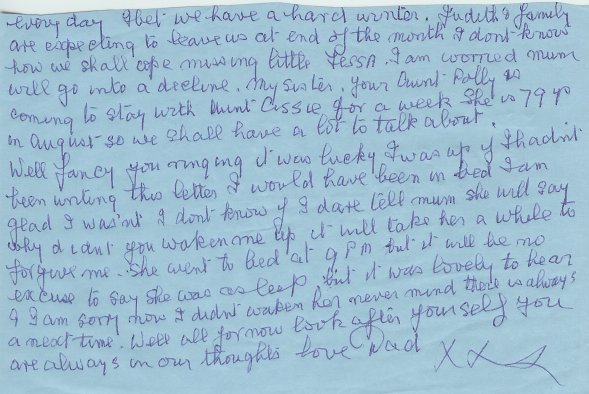 every day I bet we have a hard winter. Judith's family
are expecting to leave us at end of the month I dont know
how we shall cope missing little Tessa. I am worried mum
will go into a decline. My sister, your Aunt Polly is
coming to stay with Aunt Cissie for a week she is 79 yo
in August so we shall have a lot to talk about.
Well fancy you ringing it was lucky I was up if I hadn't
been writing this letter I would have been in bed I am
glad I was'nt I dont know if I dare tell mum she will say
why didnt you waken me up it will take her a while to
forgive me. She went to bed at 9 PM but it will be no
excuse to say she was asleep but it was lovely to hear
& I am sorry now I didnt waken her never mind there is always
a next time. Well all for now look after yourself you
are always in our thoughts love Dad XX